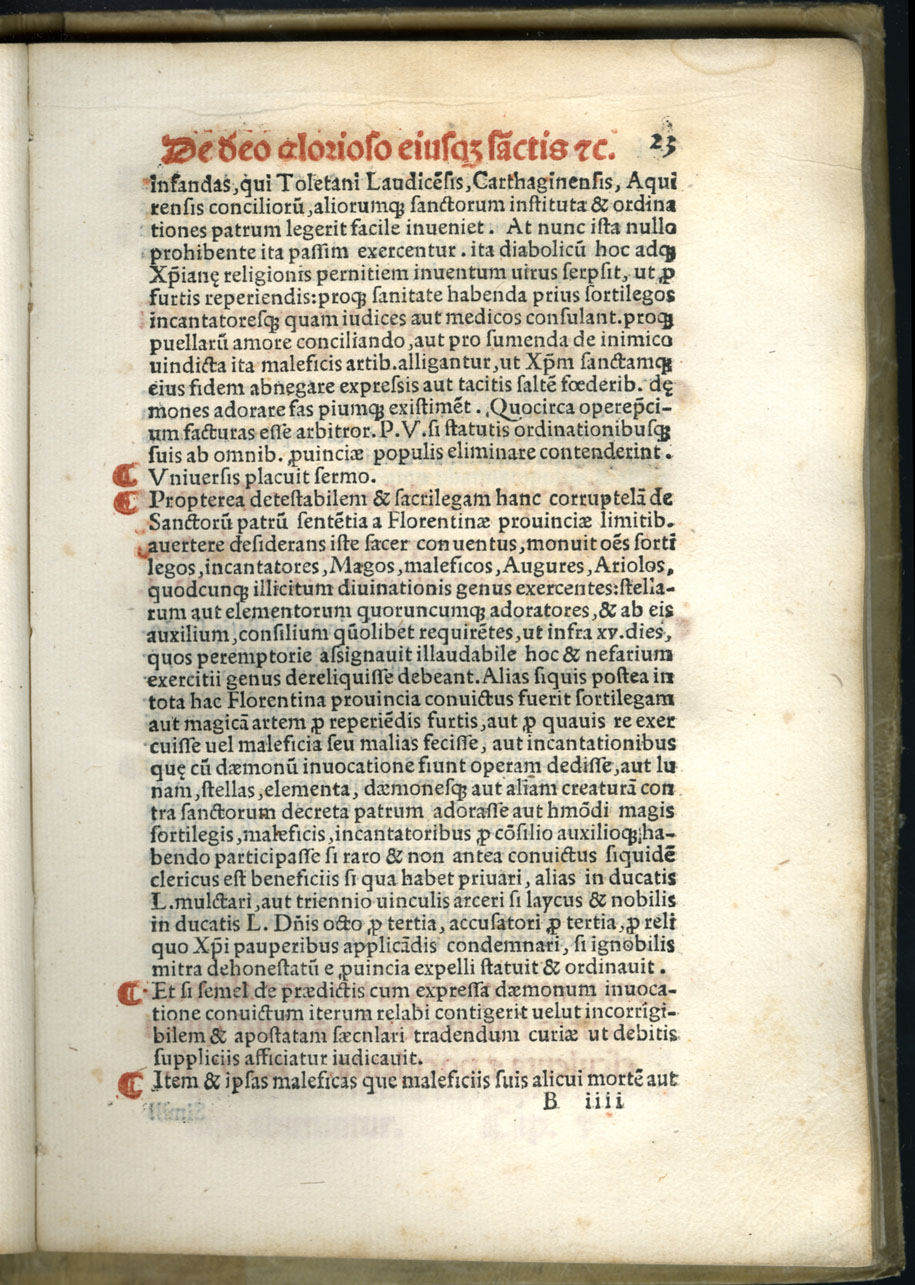 De deo glorioso eiusqꝫ sãctis ⁊c. 23
infandas,qui Toletani Laudicẽsis,Carthaginensis, Aqui
rensis conciliorũ,aliorumqꝫ sanctorum instituta & ordina
tiones patrum legerit facile inueniet. At nunc ista nullo
prohibente ita passim exercentur. ita diabolicũ hoc adqꝫ
Xp̃ianę religionis pernitiem inuentum uirus serpsit, ut ꝓ
furtis reperiendis:proqꝫ sanitate habenda prius sortilegos
incantatoresqꝫ quam iudices aut medicos consulant.proqꝫ
puellarũ amore conciliando,aut pro sumenda de inimico
uindicta ita maleficis artib.alligantur,ut Xp̃m sanctamqꝫ
eius fidem abnegare expressis aut tacitis saltẽ fœderib. dę
mones adorare fas piumqꝫ existimẽt. Quocirca operep̃ci-
um facturas esse arbitror.P.V.si statutis ordinationibusqꝫ
suis ab omnib. ꝓuinciæ populis eliminare contenderint.
Vniuersis placuit sermo.
Propterea detestabilem & sacrilegam hanc corruptelã de
Sanctorũ patrũ sentẽtia a Florentinæ prouinciæ limitib.
auertere desiderans iste sacer conuentus,monuit oẽs sorti
legos,incantatores,Magos,maleficos,Augures,Ariolos,
quodcunqꝫ illicitum diuinationis genus exercentes:stella-
rum aut elementorum quoruncumqꝫ adoratores,& ab eis
auxilium,consilium qũolibet requirẽtes,ut infra xv.dies,
quos peremptorie assignauit illaudabile hoc & nefarium
exercitii genus dereliquisse debeant.Alias siquis postea in
tota hac Florentina prouincia conuictus fuerit sortilegam
aut magicã artem ꝓ reperiẽdis furtis,aut ꝓ quauis re exer
cuisse uel maleficia seu malias fecisse, aut incantationibus
quę cũ dæmonũ inuocatione fiunt operam dedisse,aut lu
nam,stellas,elementa, dæmonesqꝫ aut aliam creaturã con
tra sanctorum decreta patrum adorasse aut hmõdi magis
sortilegis,maleficis,incantatoribus ꝓ cõsilio auxilioqꝫ ha-
bendo participasse si raro & non antea conuictus siquidẽ
clericus est beneficiis si qua habet priuari, alias in ducatis
L.mulctari,aut triennio uinculis arceri si laycus & nobilis
in ducatis L. Dñis octo ꝓ tertia, accusatori ꝓ tertia,ꝓ reli
quo Xp̃i pauperibus applicãdis condemnari, si ignobilis
mitra dehonestatũ e ꝓuincia expelli statuit & ordinauit.
Et si semel de prædictis cum expressa dæmonum inuoca-
tione conuictum iterum relabi contigerit uelut incorrigi-
bilem & apostatam sæcnlari tradendum curiæ ut debitis
suppliciis afficiatur iudicauit.
Item & ipsas maleficas que maleficiis suis alicui mortẽ aut
B iiii